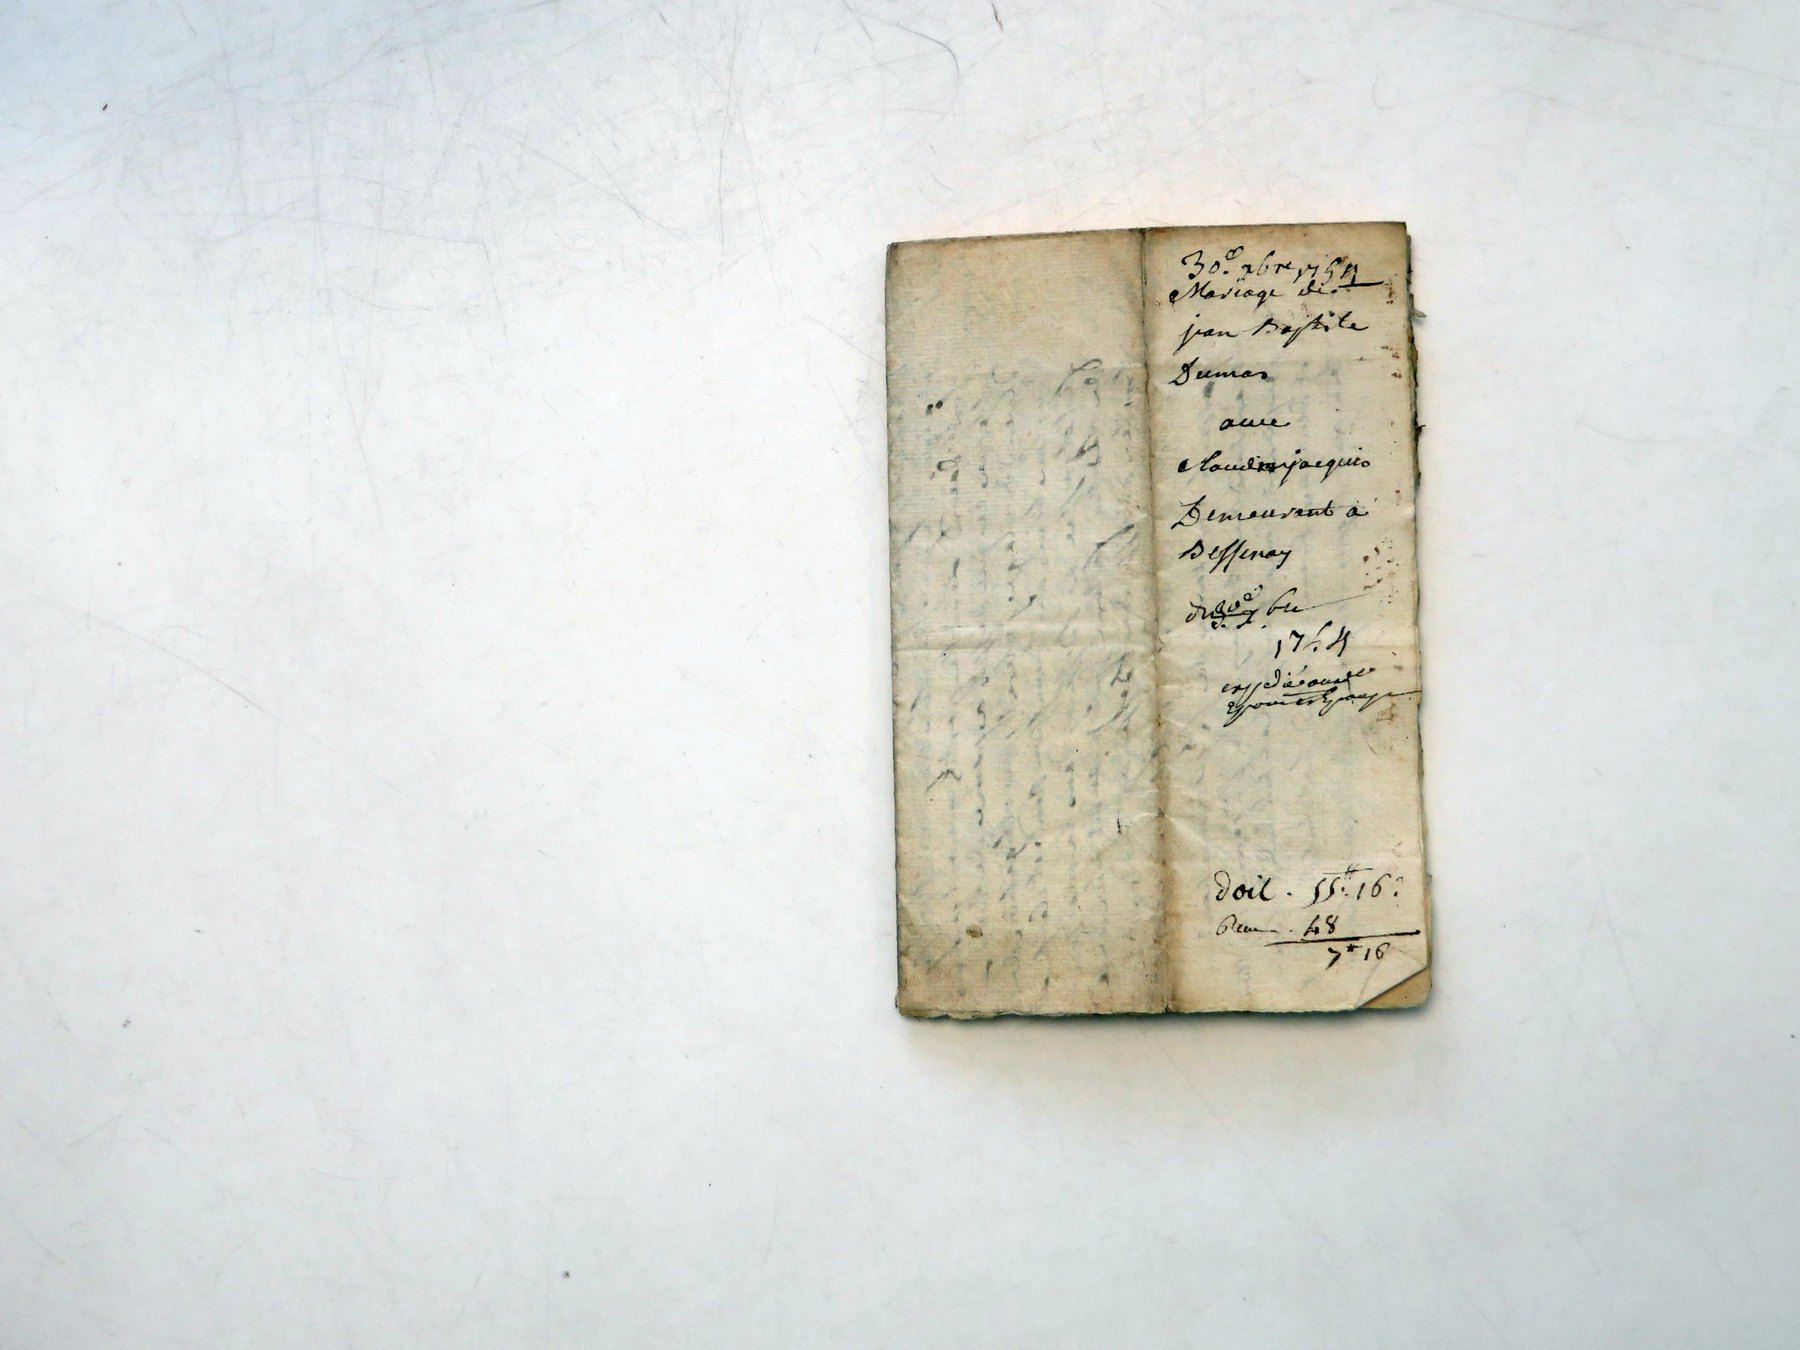 30e 7bre 1754
Mariage de
jean Baptiste
Dumas
avec
jacquis
Demeurant a
Bessenay
du 30e 7bre
1754
expedié
doit . 55# 16s
48
7# 16